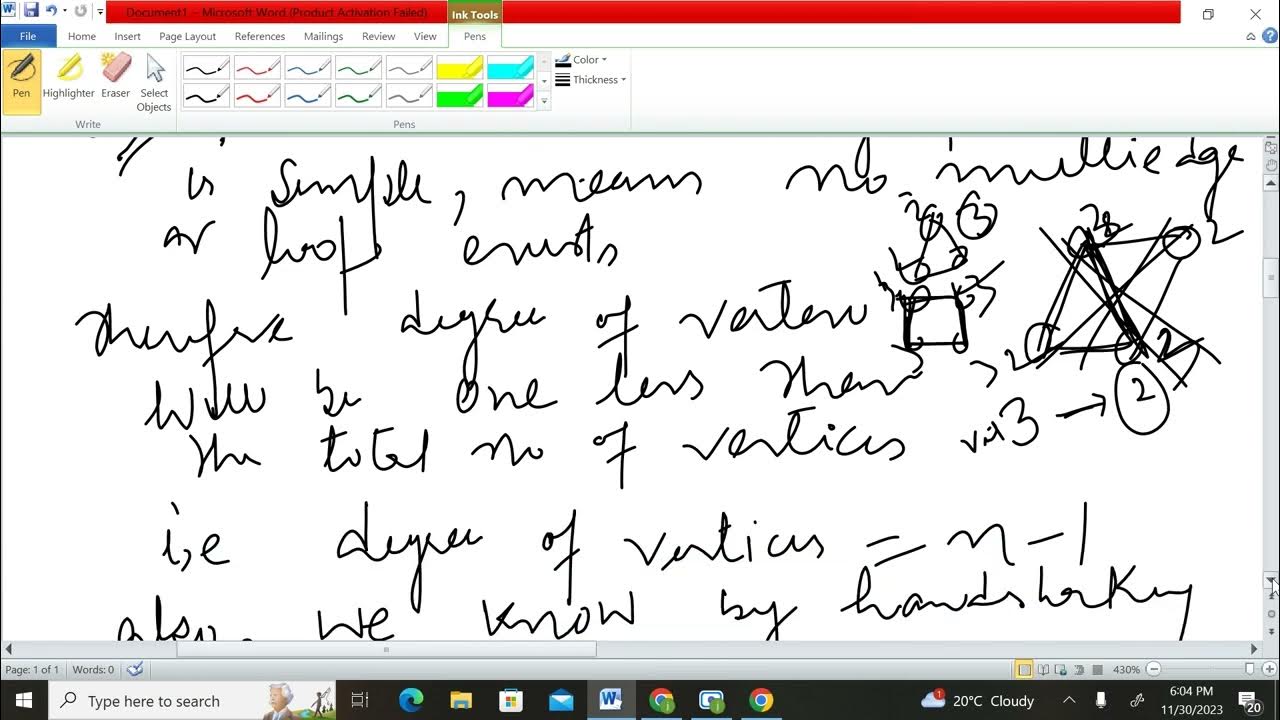 Document1 - Microsoft Word (Product Activation Failed)
Ink Tools
File Home Insert Page Layout References Mailings Review View Pens
Pen Highlighter Eraser Select Objects
Color
Thickness
Write
Pens
is Simple, means no multiedge
or loop exists
3
2 2
Therefore degree of vertex
will be one less than
2
the total no of vertices 3 → 2
i.e degree of vertices = n - 1
also, we know by handshaking
Page: 1 of 1 Words: 0 430%
Type here to search
1 20°C Cloudy
6:04 PM
11/30/2023
20